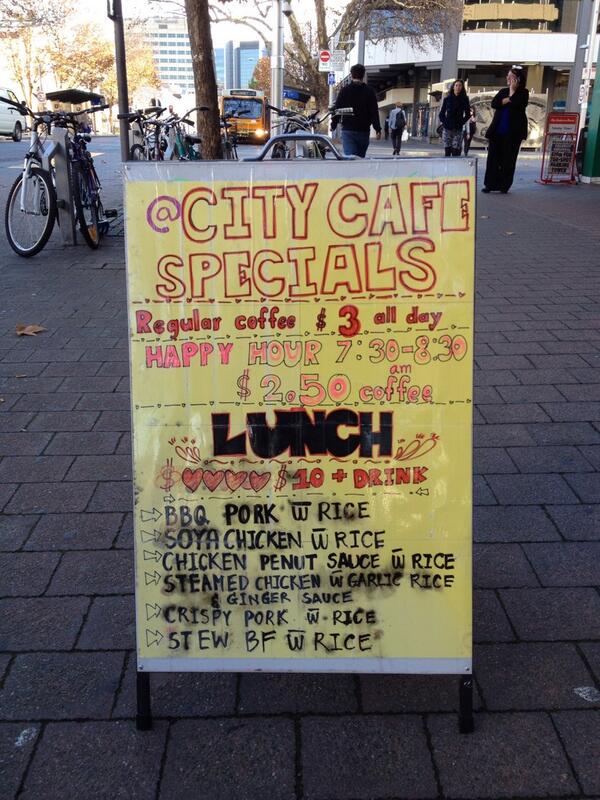 @CITY CAFE
SPECIALS
Regular coffee $3 all day
HAPPY HOUR 7:30-8:30
am
$2.50 coffee
LUNCH
$♥♥♥♥$10 + DRINK
BBQ PORK W̅ RICE
SOYA CHICKEN W̅ RICE
CHICKEN PENUT SAUCE W̅ RICE
STEAMED CHICKEN W̅ GARLIC RICE
& GINGER SAUCE
CRISPY PORK W̅ RICE
STEW BF W̅ RICE